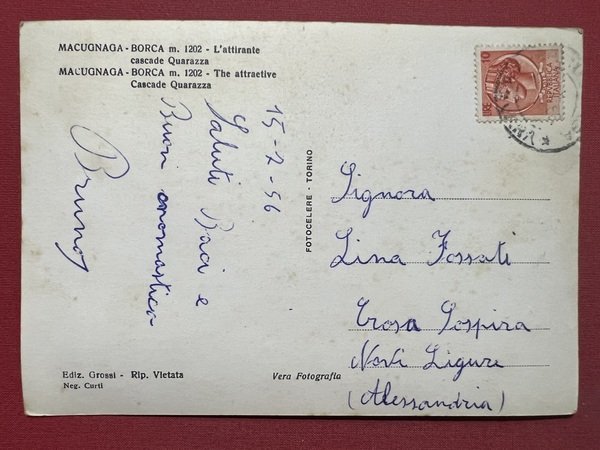 MACUGNAGA - BORCA m. 1202 - L'attirante
cascade Quarazza
MACUGNAGA - BORCA m. 1202 - The attraetive
Cascade Quarazza
15-7-56
Saluti Baci e
Buon onomastico
Bruno
FOTOCELERE - TORINO
Signora
Lina Fossati
Crosa Sospira
Novi Ligure
(Alessandria)
Ediz. Grossi - Rip. Vietata
Neg. Curti
Vera Fotografia